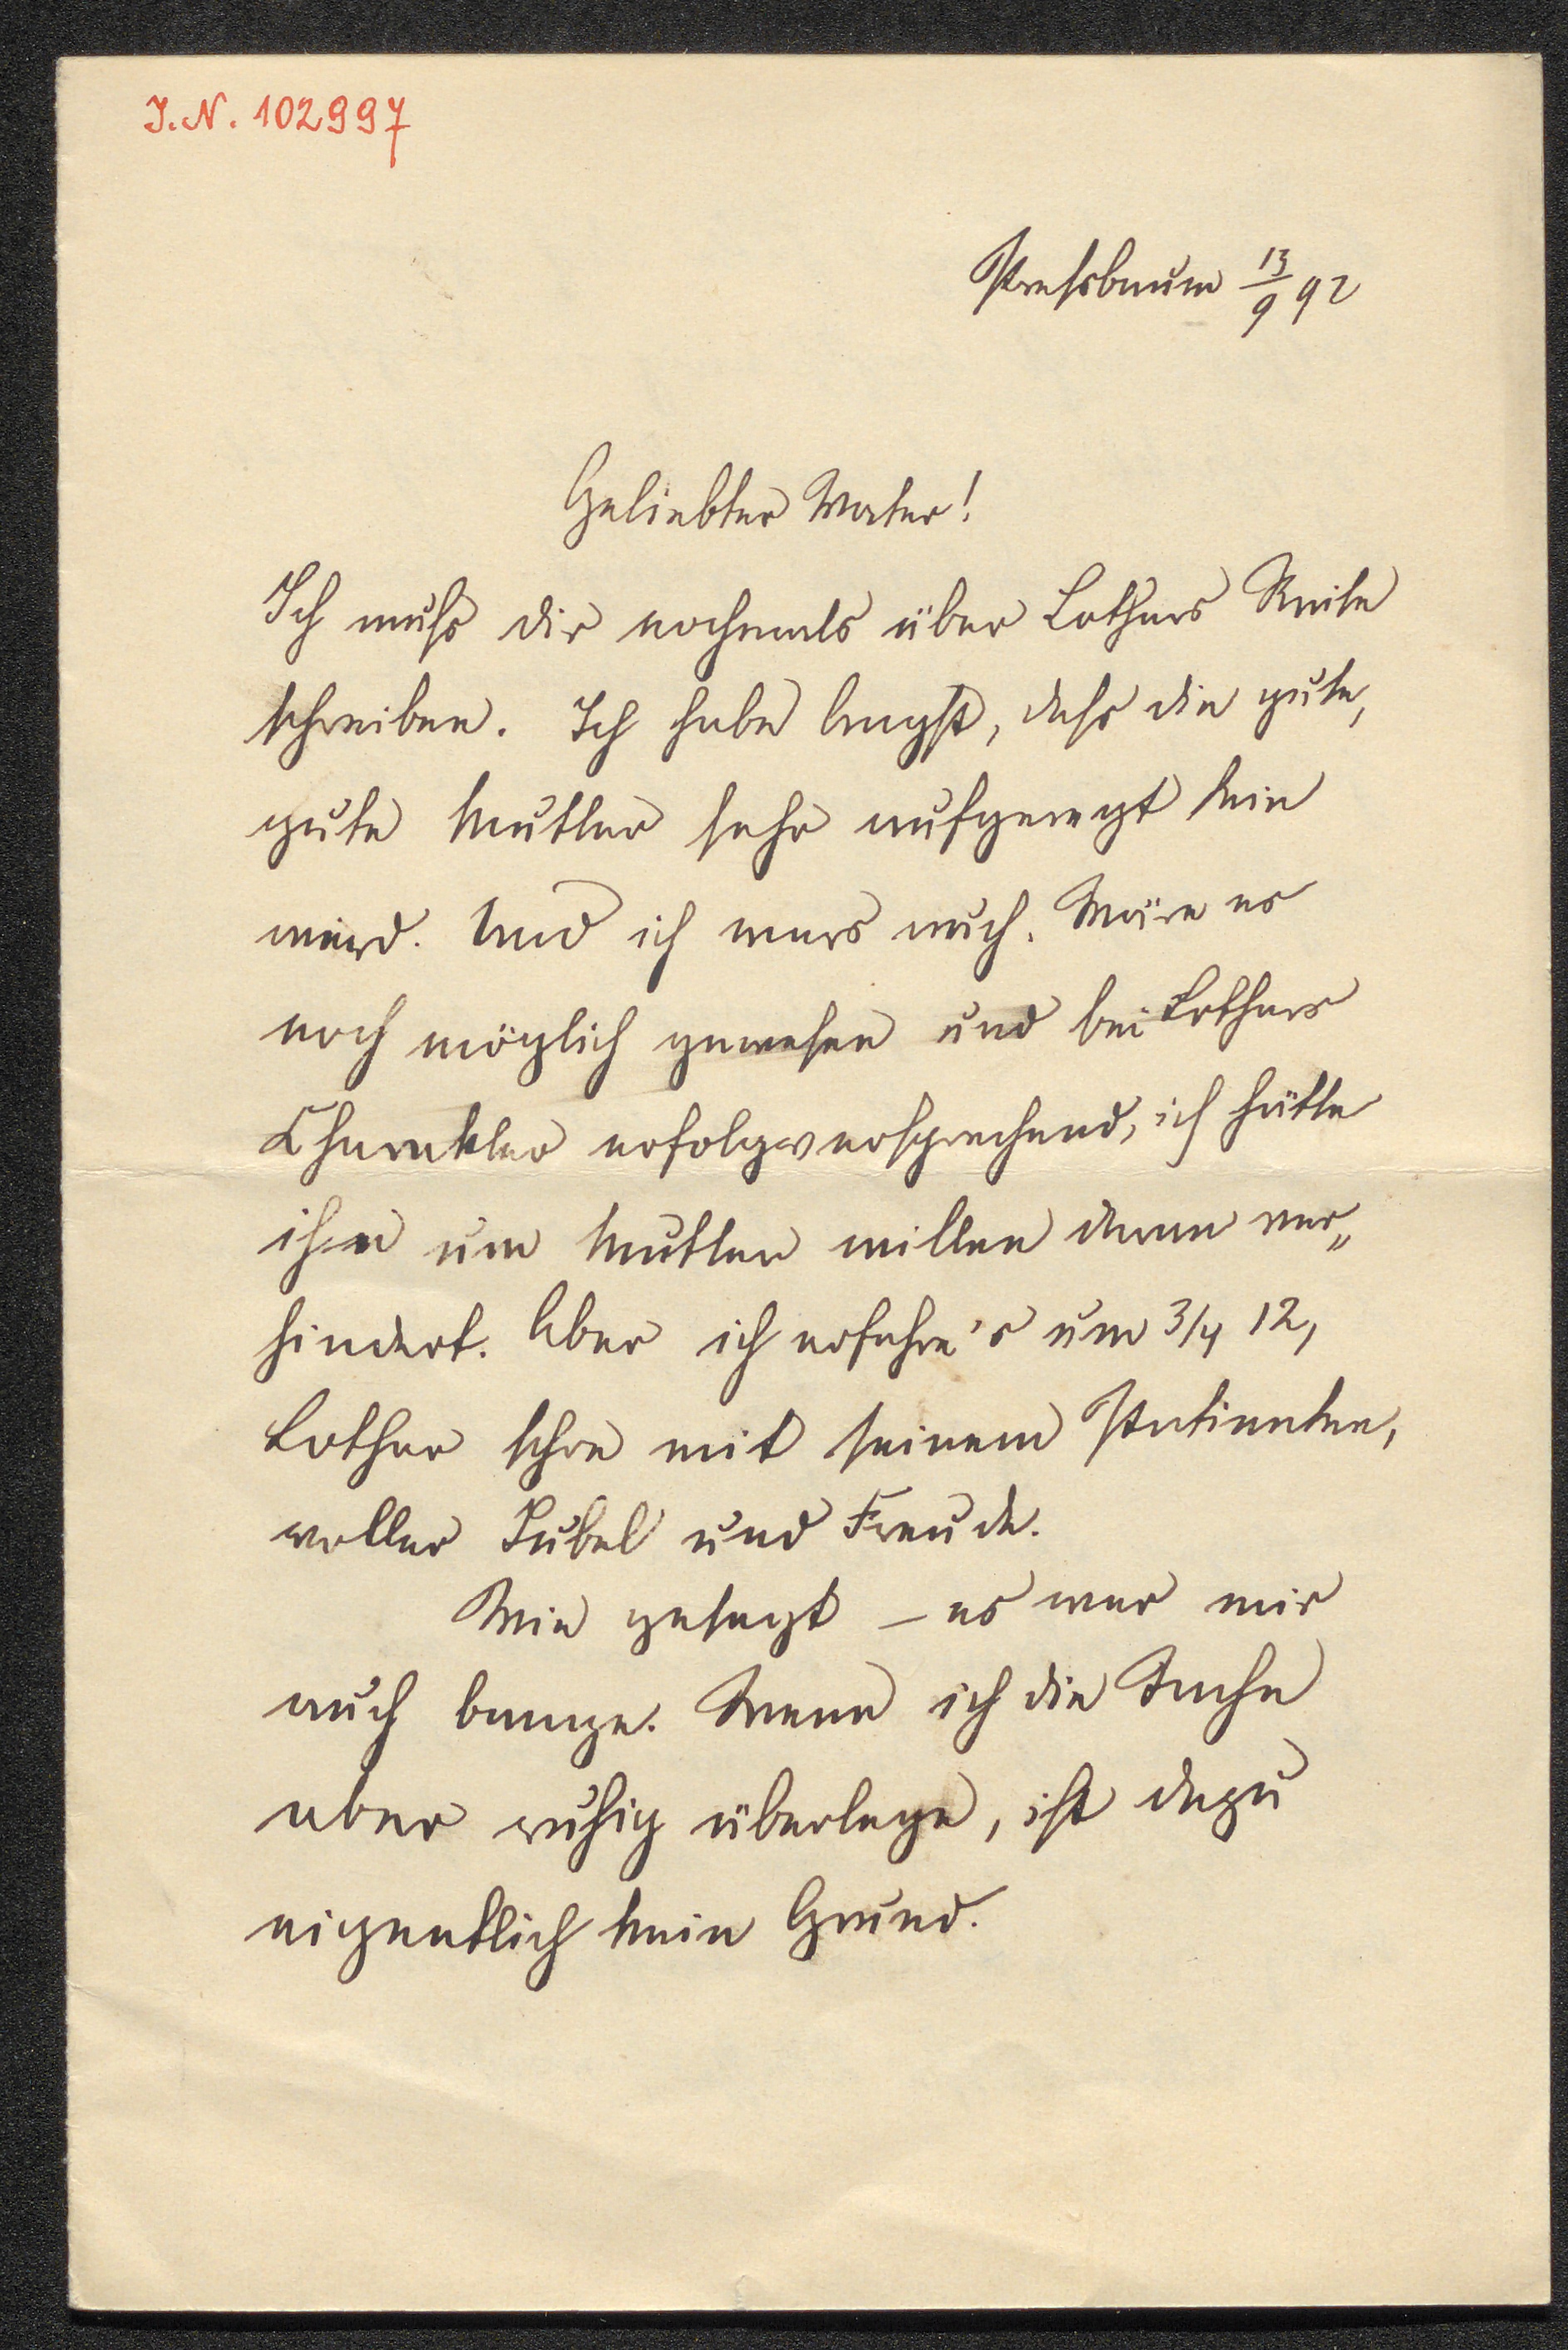 I.N. 102997
Pressbaum 13/9 92
Geliebter Vater!
Ich muss dir nochmals über Lothars Reise
schreiben. Ich habe Angst, dass die gute,
gute Mutter sehr aufgeregt sein
wird. Und ich wars auch. Wäre es
noch möglich gewesen und bei Lothars
Charakter erfolgversprechend, ich hätte
ihn um Mutter willen daran ver„
hindert. Aber ich erfahre's um 3/4 12,
Lothar mit seinem Patienten,
voller Jubel und Freude.
Wie gesagt – es war mir
auch bange. Wenn ich die Sache
aber ruhig überlege, ist dazu
eigentlich kein Grund.